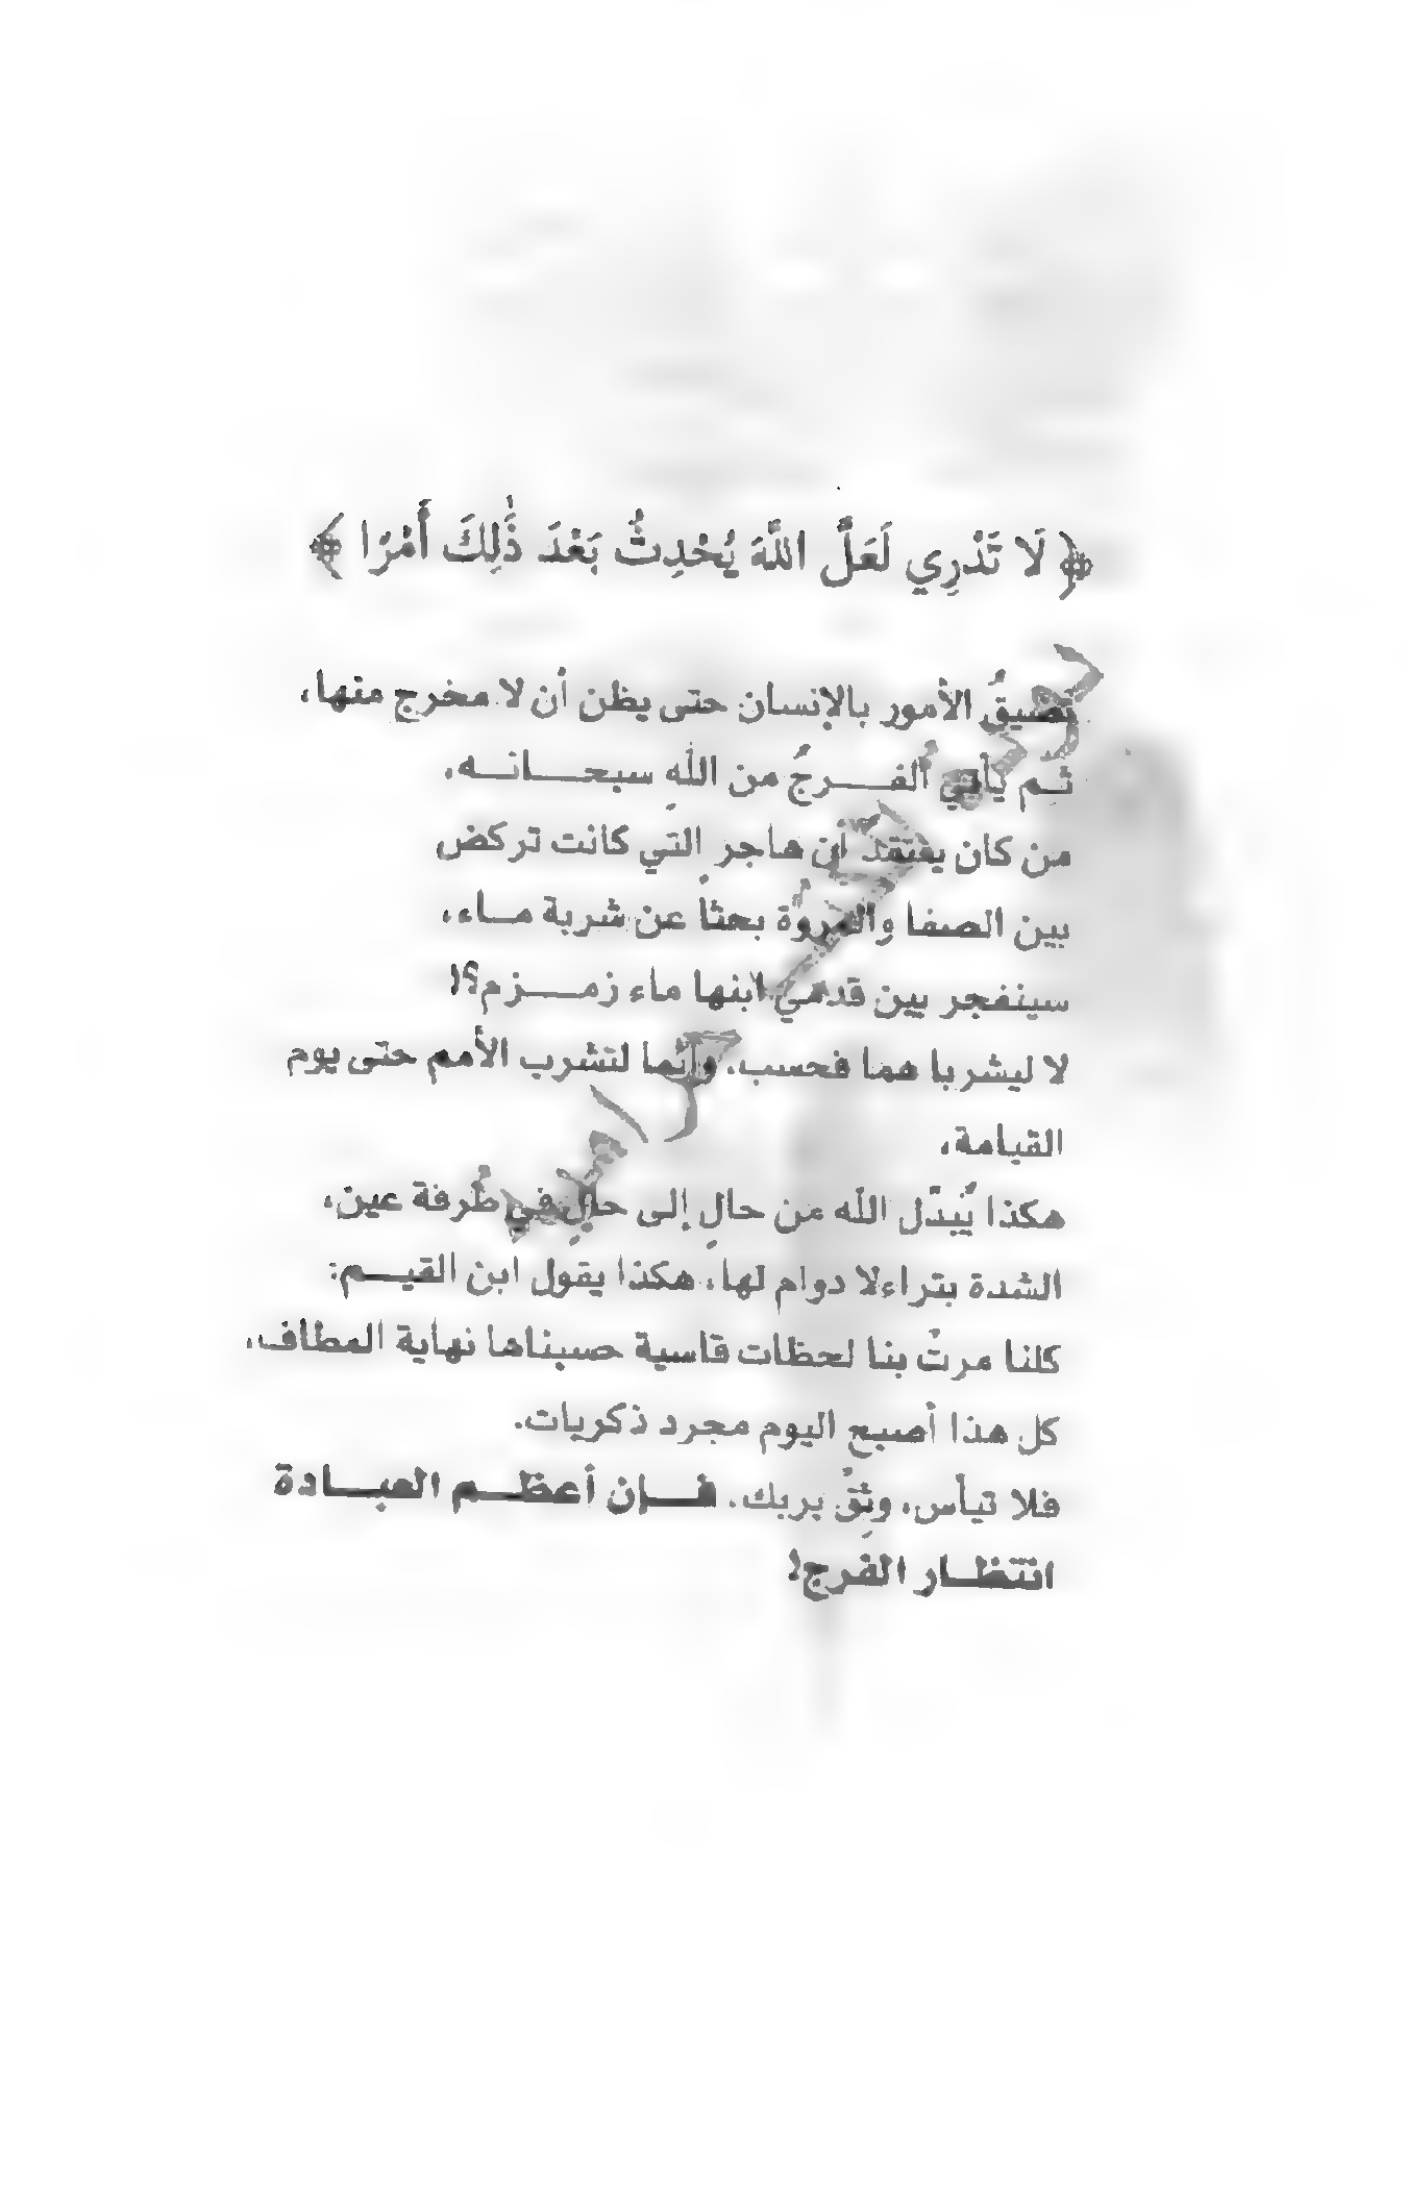 ﴿ لَا تَدْرِي لَعَلَّ اللَّهَ يُحْدِثُ بَعْدَ ذَٰلِكَ أَمْرًا ﴾
تضيقُ الأمور بالإنسان حتى يظن أن لا مخرج منها،
ثم يأتي الفـــرجُ من اللهِ سبحــــانـــه،
من كان يعتقد أن هاجر التي كانت تركض
بين الصفا والمروة بحثاً عن شربة مــاء،
سينفجر بين قدمي ابنها ماء زمــــزم؟!
لا ليشربا هما فحسب، وإنما لتشرب الأمم حتى يوم
القيامة،
هكذا يُبدّل الله من حالٍ إلى حالٍ في طُرفة عين،
الشدة بتراء لا دوام لها، هكذا يقول ابن القيـــم:
كلنا مرتْ بنا لحظات قاسية حسبناها نهاية المطاف،
كل هذا أصبح اليوم مجرد ذكريات.
فلا تيأس، وثِقْ بربك، فـــإن أعظـــم العبـــادة
انتظــار الفرج!